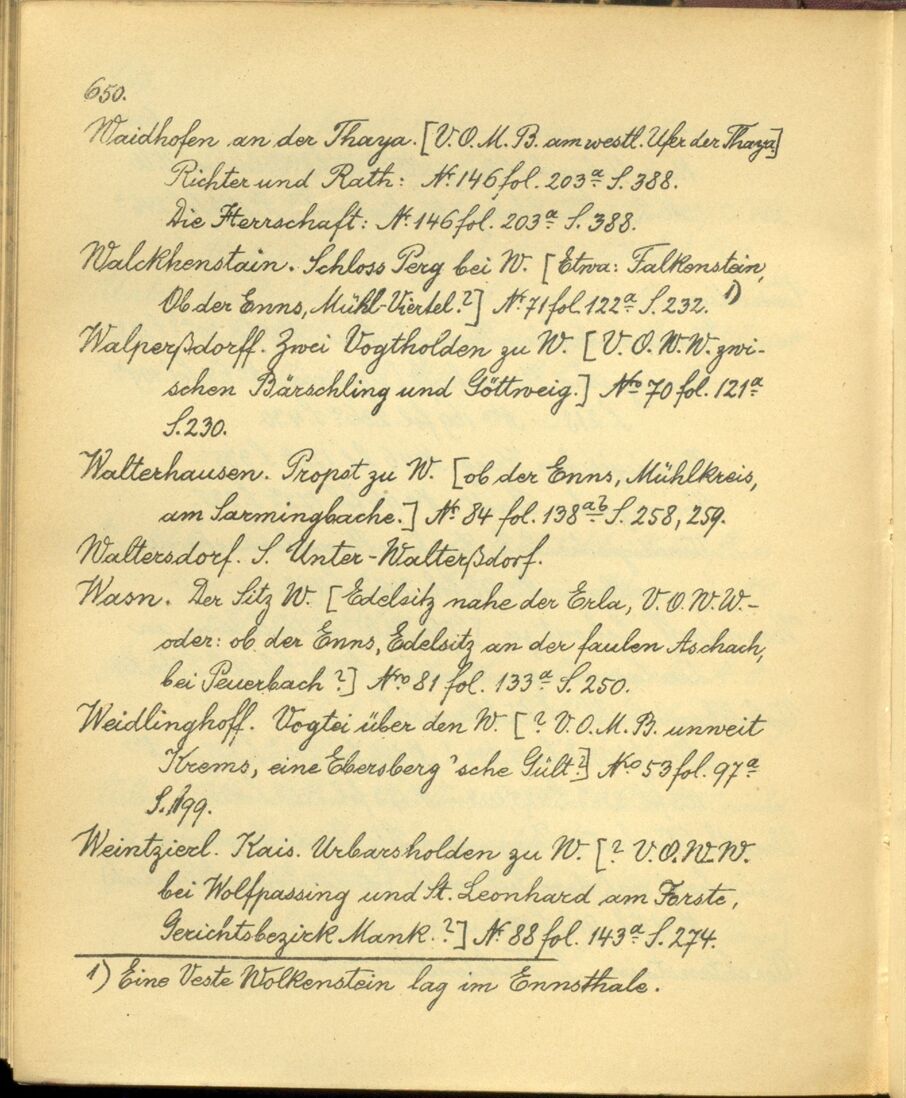 650.
Waidhofen an der Thaya. [V.O.M.B. am westl. Ufer der Thaya.]
Richter und Rath: Nr. 146 fol. 203a S. 388.
Die Herrschaft: Nr. 146 fol. 203a S. 388.
Walckhenstain. Schloss Perg bei W. [Etwa: Falkenstein,
Ob der Enns, Mühl-Viertel?] Nr. 71 fol. 122a S. 232. 1)
Walperßdorff. Zwei Vogtholden zu W. [V.O.W.W. zwi-
schen Bärschling und Göttweig.] Nro 70 fol. 121a
S. 230.
Walterhausen. Propst zu W. [ob der Enns, Mühlkreis,
am Sarmingbache.] Nr. 84 fol. 138ab S. 258, 259.
Waltersdorf. S. Unter-Walterßdorf.
Wasn. Der Sitz W. [Edelsitz nahe der Erla, V.O.W.W.-
oder: ob der Enns, Edelsitz an der faulen Aschach,
bei Peuerbach?] Nro. 81 fol. 133a S. 250.
Weidlinghoff. Vogtei über den W. [? V.O.M.B. unweit
Krems, eine Ebersberg'sche Gült?] Nro 53 fol. 97a
S. 199.
Weintzierl. Kais. Urbarsholden zu W. [? V.O.W.W.
bei Wolfpassing und St. Leonhard am Forste,
Gerichtsbezirk Mank.?] Nr. 88 fol. 143a S. 274.
1) Eine Veste Wolkenstein lag im Ennsthale.